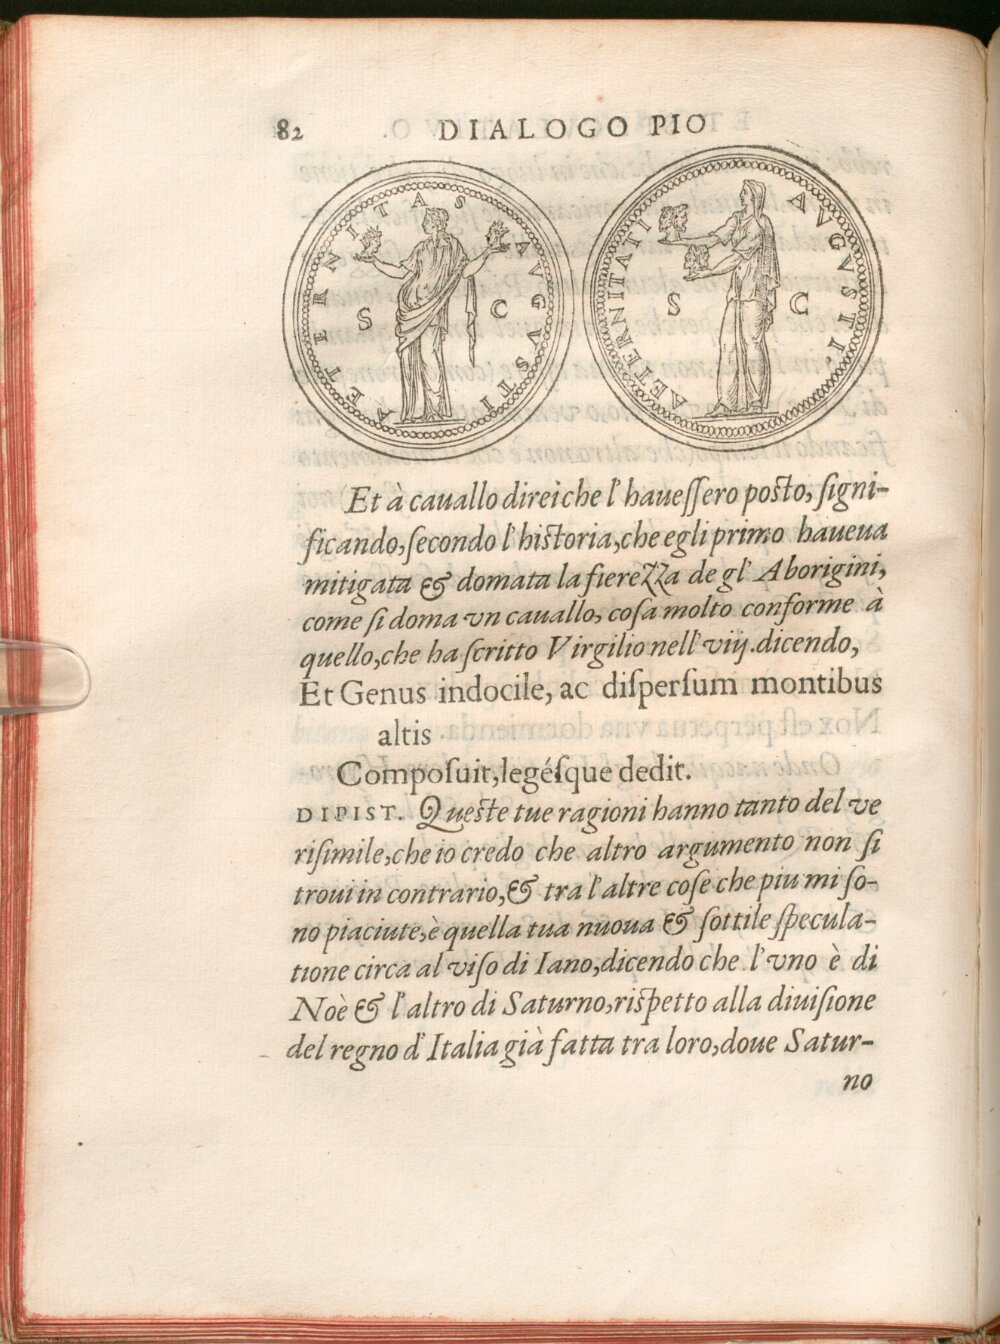 82 DIALOGO PIO
AETERNITAS AVGVSTI
S C
AETERNITATI AVGVSTI
S C
Et à cauallo direi che l'hauessero posto, signi-
ficando, secondo l'historia, che egli primo haueua
mitigata & domata la fierezza de gl' Aborigini,
come si doma vn cauallo, cosa molto conforme à
quello, che ha scritto Virgilio nell' vij. dicendo,
Et Genus indocile, ac dispersum montibus
altis
Composuit, legésque dedit.
DIPIST. Queste tue ragioni hanno tanto del ve
risimile, che io credo che altro argumento non si
troui in contrario, & tra l'altre cose che piu mi so-
no piaciute, è quella tua nuoua & sottile specula-
tione circa al viso di Iano, dicendo che l'vno è di
Noè & l'altro di Saturno, rispetto alla diuisione
del regno d'Italia già fatta tra loro, doue Satur-
no